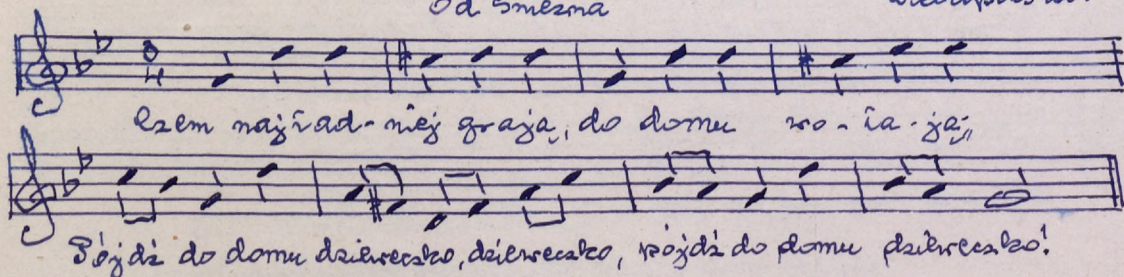 Od Gniezna
3 4
Czem najład-niej grają, do domu wo-ła-ją,,
Pójdź do domu dzieweczko, dzieweczko, pójdź do domu dzieweczko!